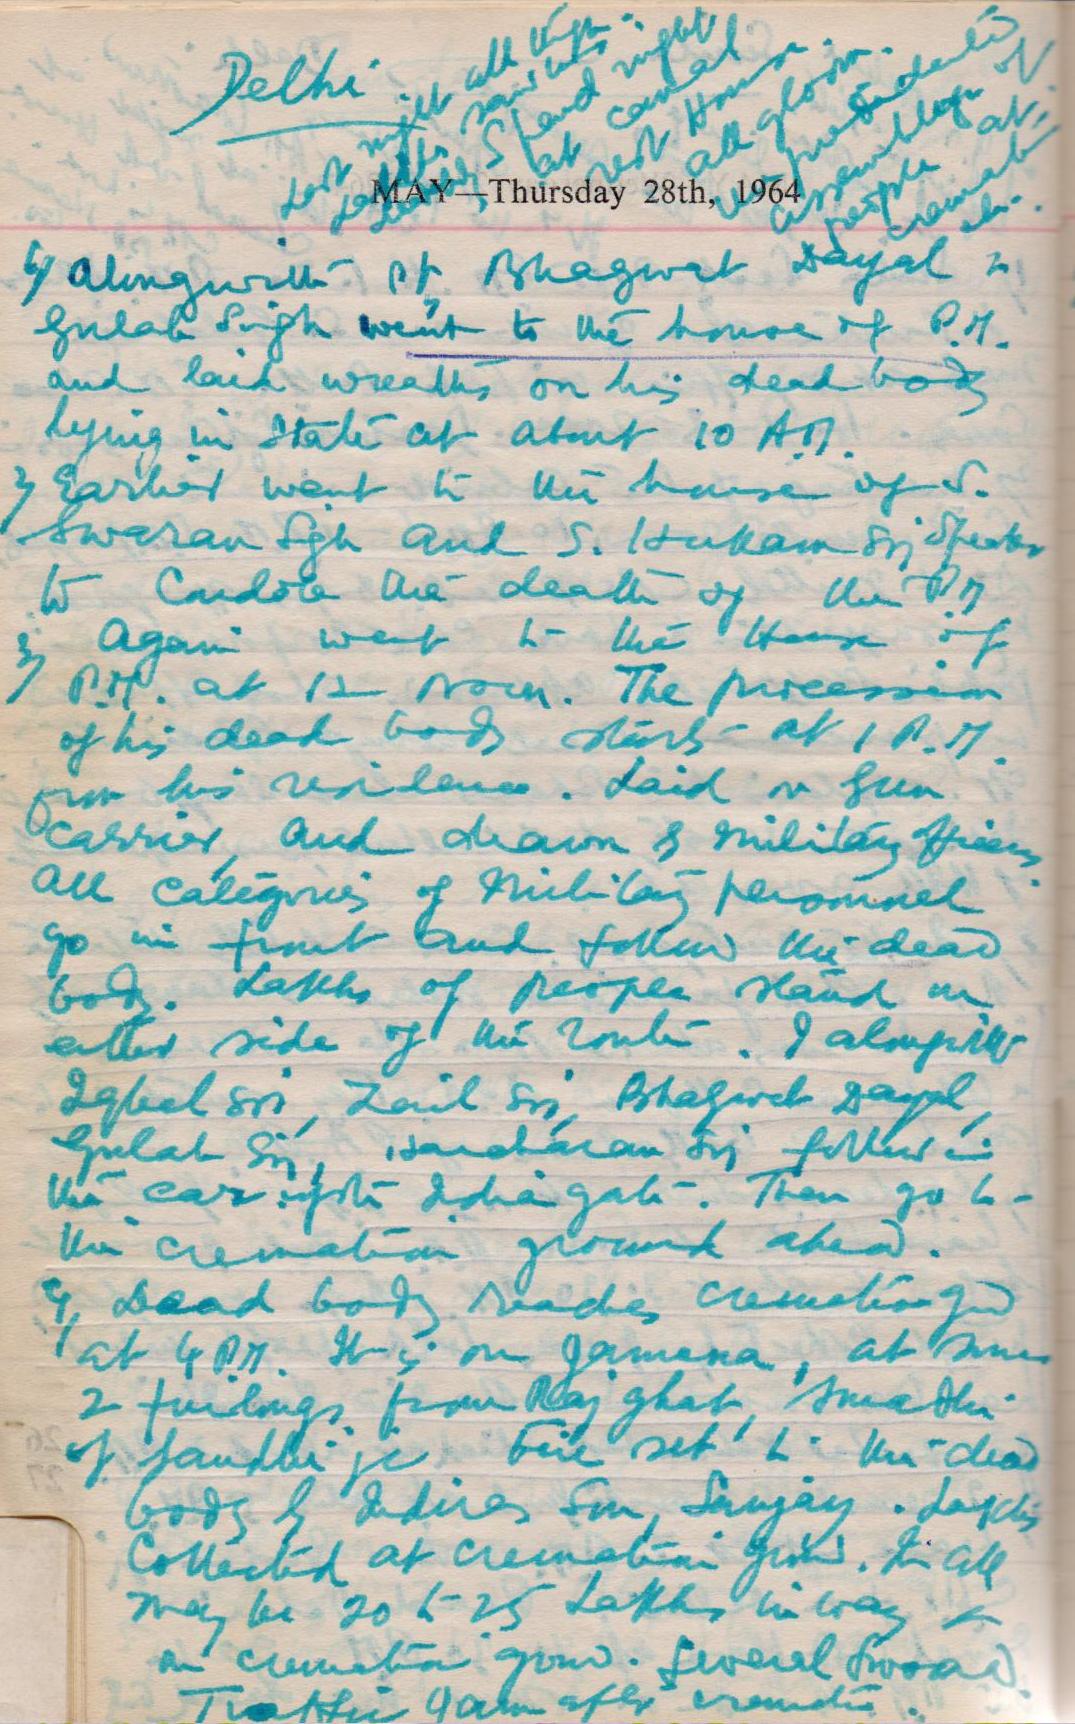 Delhi
Last night all thro
lakhs saw his
dead body. Spend night
at canal
rest House.
all gloom.
unprecedented
assemblage of
people at
cremation.
MAY—Thursday 28th, 1964
1) Alongwith Pt. Bhagwat Dayal &
Gulab Singh went to the house of P.M.
and laid wreaths on his dead body
lying in State at about 10 A.M.
2) Earlier went to the house of S.
Swaran Sgh and S. Hukam Sg Speaker
to Condole the death of the P.M
3) Again went to the House of
P.M. at 12 Noon. The procession
of his dead body starts at 1 P.M.
from his residence. Laid on Gun
carrier, and drawn by Military officers
All categories of Military personnel
go in front and follow the dead
body. Lakhs of people stand on
either side of the route. I alongwith
Iqbal Sg, Zail Sg, Bhagwat Dayal,
Gulab Sg, Harcharan Sg follow in
the car upto India gate. Then go to
the cremation ground ahead.
4) Dead body reaches cremation gd
at 4 P.M. It is on Jamuna, at some
2 furlongs from Raj ghat, Smadhi
of Gandhi ji. Fire set to the dead
body by Indira's Son, Sanjay. Lakhs
Collected at cremation ground. In all
may be 20 to 25 Lakhs in way &
on cremation ground. Several
Traffic after cremation.